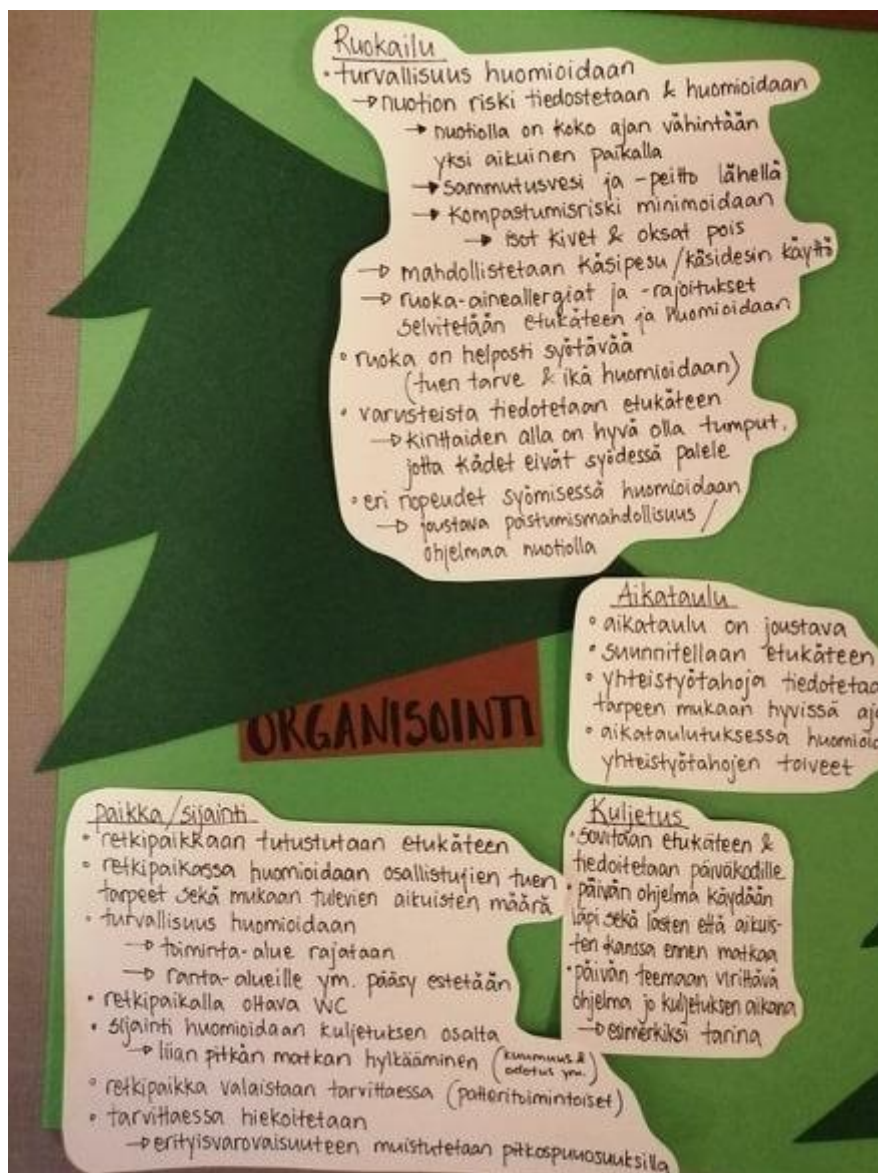 Ruokailu
• turvallisuus huomioidaan
→ nuotion riski tiedostetaan & huomioidaan
→ nuotiolla on koko ajan vähintään
yksi aikuinen paikalla
→ sammutusvesi ja -peitto lähellä
→ kompastumisriski minimoidaan
→ isot kivet & oksat pois
→ mahdollistetaan käsipesu/käsidesin käyttö
→ ruoka-aineallergiat ja -rajoitukset
selvitetään etukäteen ja huomioidaan
• ruoka on helposti syötävää
(tuen tarve & ikä huomioidaan)
• varusteista tiedotetaan etukäteen
→ kinttaiden alla on hyvä olla tumput,
jotta kädet eivät syödessä palele
• eri nopeudet syömisessä huomioidaan
→ joustava paistumismahdollisuus/
ohjelmaa nuotiolla
Aikataulu
• aikataulu on joustava
• suunnitellaan etukäteen
• yhteistyötahoja tiedoteta
tarpeen mukaan hyvissä aj
• aikataulutuksessa huomioid
yhteistyötahojen toiveet
ORGANISOINTI
paikka/sijainti
• retkipaikkaan tutustutaan etukäteen
• retkipaikassa huomioidaan osallistujien tuen
tarpeet sekä mukaan tulevien aikuisten määrä
• turvallisuus huomioidaan
→ toiminta-alue rajataan
→ ranta-alueille ym. pääsy estetään
• retkipaikalla oltava WC
• sijainti huomioidaan kuljetuksen osalta
→ liian pitkän matkan hylkääminen (kuumuus & odotus ym.)
• retkipaikka valaistaan tarvittaessa (patteritoimintoiset)
• tarvittaessa hiekoitetaan
→ erityisvarovaisuuteen muistutetaan pitkospuuosuuksilla
Kuljetus
• sovitaan etukäteen &
tiedoitetaan päiväkodille
• päivän ohjelma käydään
läpi sekä lasten että aikuis-
ten kanssa ennen matkaa
• päivän teemaan virittävä
ohjelma jo kuljetuksen aikana
→ esimerkiksi tarina